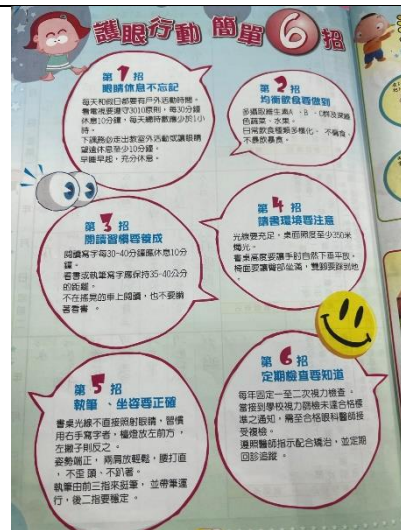 護眼行動 簡單6招
第1招
眼睛休息不忘記
每天和假日都要有戶外活動時間。
看電視要遵守3010原則，每30分鐘
休息10分鐘，每天總時數應少於1小
時。
下課務必走出教室外活動或讓眼睛
望遠休息至少10分鐘。
早睡早起，充分休息。
第2招
均衡飲食要做到
多攝取維生素A、B、C群及深綠
色蔬菜、水果。
日常飲食種類多樣化、不偏食、
不暴飲暴食。
第3招
閱讀習慣要養成
閱讀寫字每30-40分鐘應休息10分
鐘。
看書或執筆寫字應保持35-40公分
的距離。
不在搖晃的車上閱讀，也不要躺
著看書。
第4招
讀書環境要注意
光線要充足，桌面照度至少350米
燭光。
書桌高度要讓手肘自然下垂平放。
椅面要讓臀部坐滿，雙腳要踩到地
。
第5招
執筆、坐姿要正確
書桌光線不直接照射眼睛，習慣
用右手寫字者，檯燈放左前方，
左撇子則反之。
姿勢端正，兩肩放輕鬆，腰打直
，不歪頭、不趴著。
執筆由前三指來挺筆，並帶筆運
行，後二指要穩定。
第6招
定期檢查要知道
每年固定一至二次視力檢查。
當接到學校視力篩檢未達合格標
準之通知，需至合格眼科醫師接
受複檢。
遵照醫師指示配合矯治，並定期
回診追蹤。